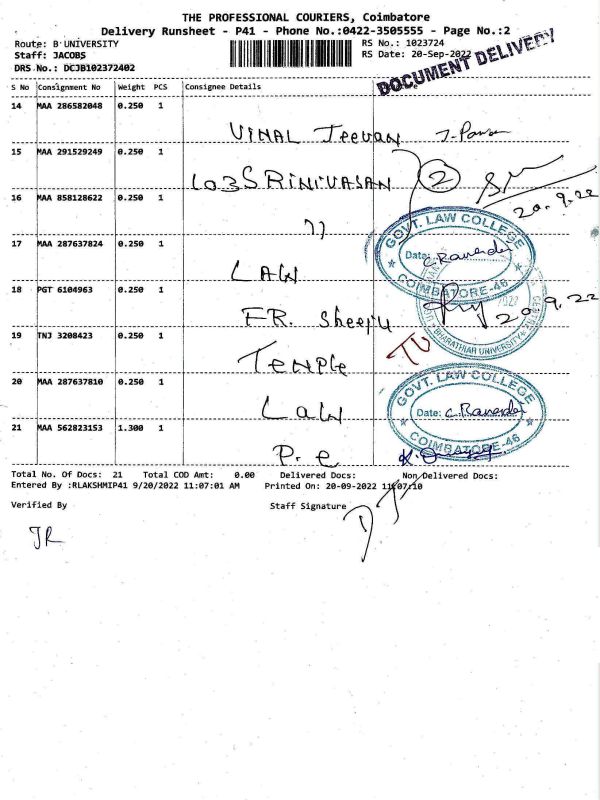 THE PROFESSIONAL COURIERS, Coimbatore
Delivery Runsheet - P41 - Phone No.:0422-3505555 - Page No.:2
Route: B UNIVERSITY RS No.: 1023724
Staff: JACOBS RS Date: 20-Sep-2022
DRS No.: DCJB102372402 DOCUMENT DELIVERY
S No Consignment No Weight PCS Consignee Details
14 MAA 286582048 0.250 1
VIMAL Jeevan
15 MAA 291529249 0.250 1
LO3SRINIVASAN 2
16 MAA 858128622 0.250 1
20.9.22
17 MAA 287637824 0.250 1
LAW
GOVT. LAW COLLEGE
Date:
COIMBATORE-46
18 PGT 6104963 0.250 1
FR. Sheeju
20.9.22
BHARATHIAR UNIVERSITY
19 TNJ 3208423 0.250 1
TEMPLE
20 MAA 287637810 0.250 1
LAW
GOVT. LAW COLLEGE
Date:
COIMBATORE-46
21 MAA 562823153 1.300 1
P. e
Total No. Of Docs: 21 Total COD Amt: 0.00 Delivered Docs: Non Delivered Docs:
Entered By :RLAKSHMIP41 9/20/2022 11:07:01 AM Printed On: 20-09-2022 11:07:10
Verified By Staff Signature
JR